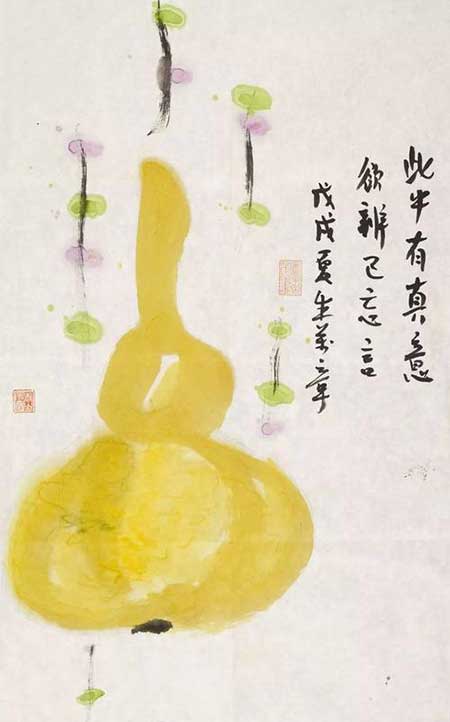 此中有真意
欲辨已忘言
戊戌夏朱萬章